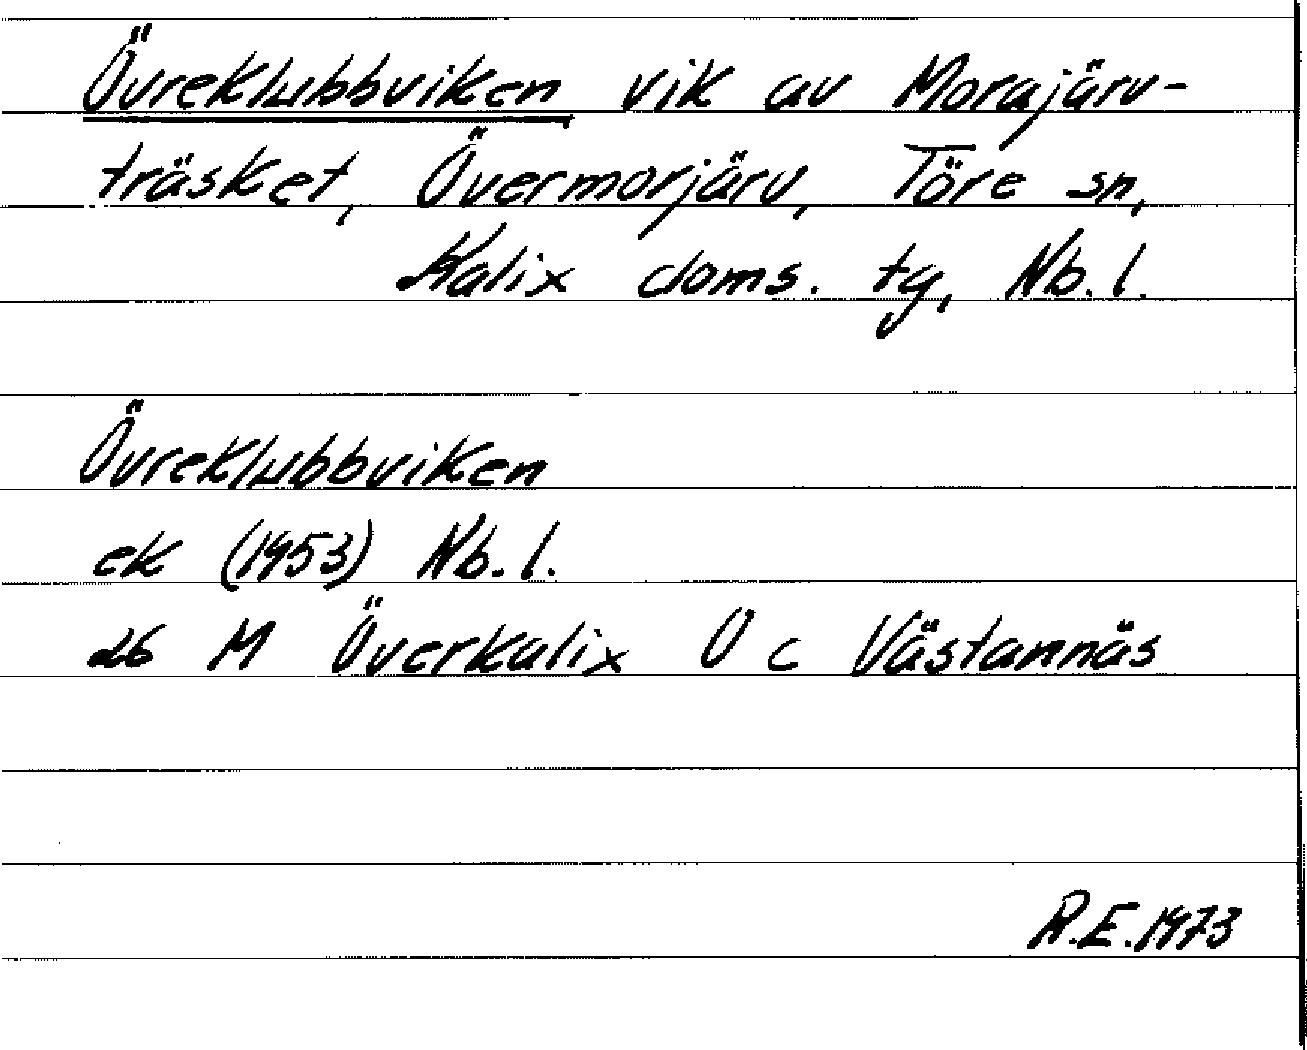 Övreklubbviken vik av Morajärv-
träsket, Övermorjärv, Töre sn,
Kalix doms. tg, Nb. l.
Övreklubbviken
ek (1953) Nb. l.
26 M Överkalix O c Västannäs
R.E. 1973